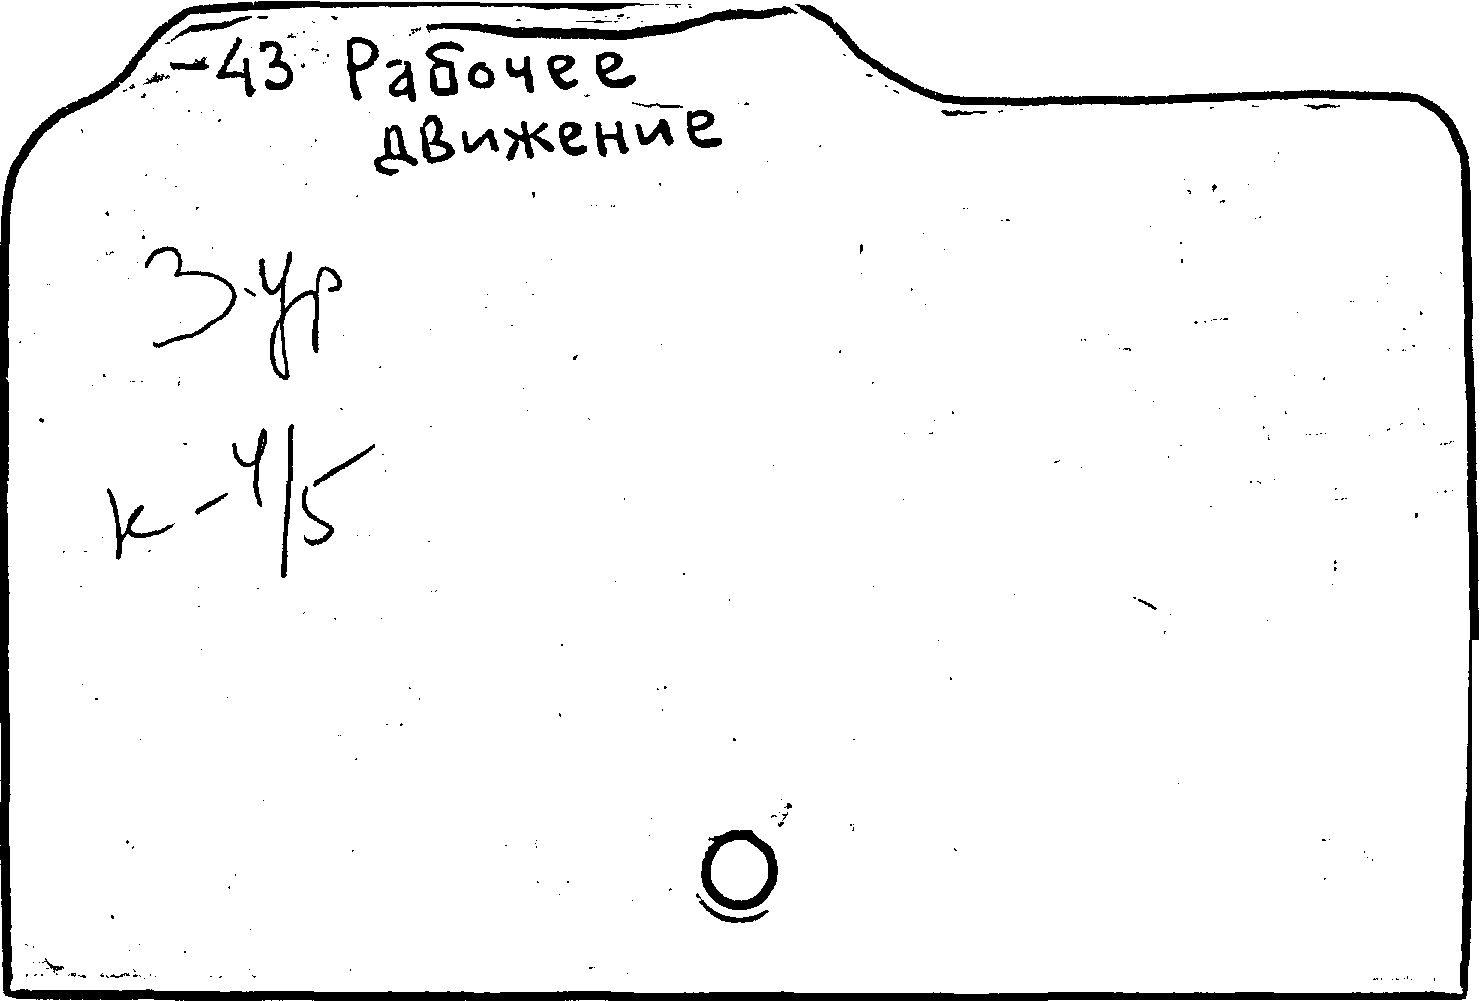 -43 Рабочее
движение
3·ур
к-4/5